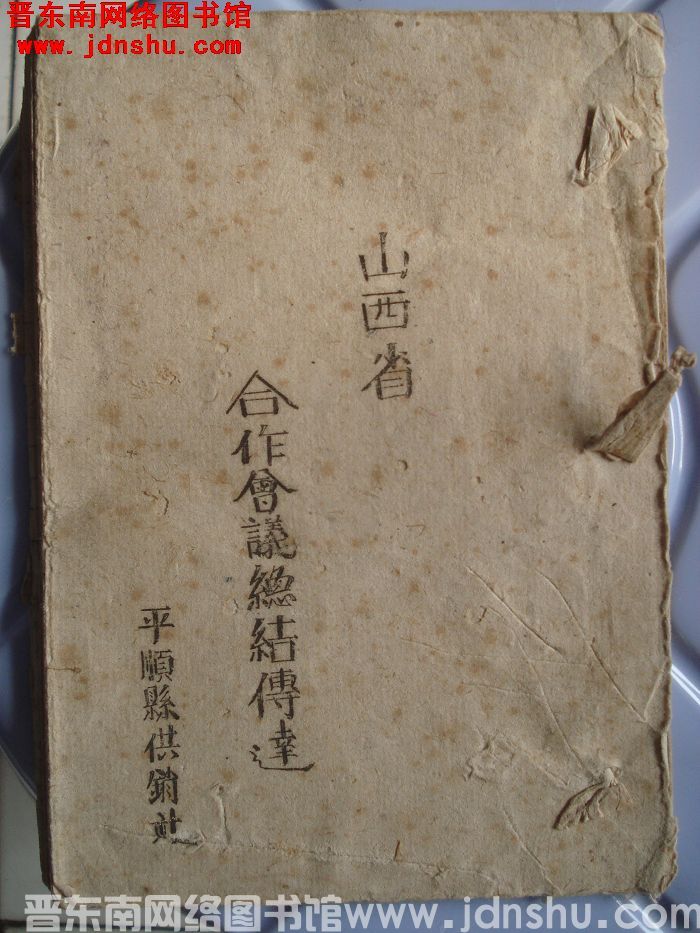 晋东南网络图书馆
www.jdnshu.com
山西省
合作會議總結傳達
平順縣供銷社
晋东南网络图书馆www.jdnshu.com